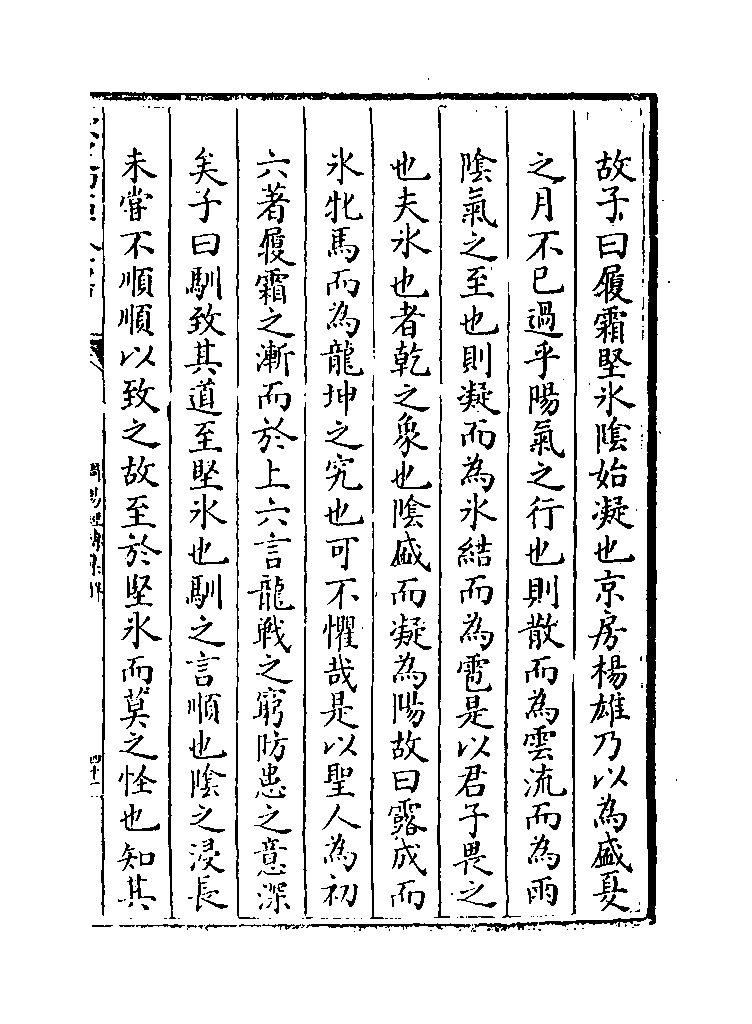 故子曰履霜堅氷陰始凝也京房楊雄乃以為盛夏
之月不已過乎陽氣之行也則散而為雲流而為雨
陰氣之至也則凝而為氷結而為雹是以君子畏之
也夫氷也者乾之象也陰盛而凝為陽故曰露成而
氷牝馬而為龍坤之究也可不懼哉是以聖人為初
六著履霜之漸而於上六言龍戰之窮防患之意深
矣子曰馴致其道至堅氷也馴之言順也陰之浸長
未嘗不順順以致之故至於堅氷而莫之怪也知其
四十二